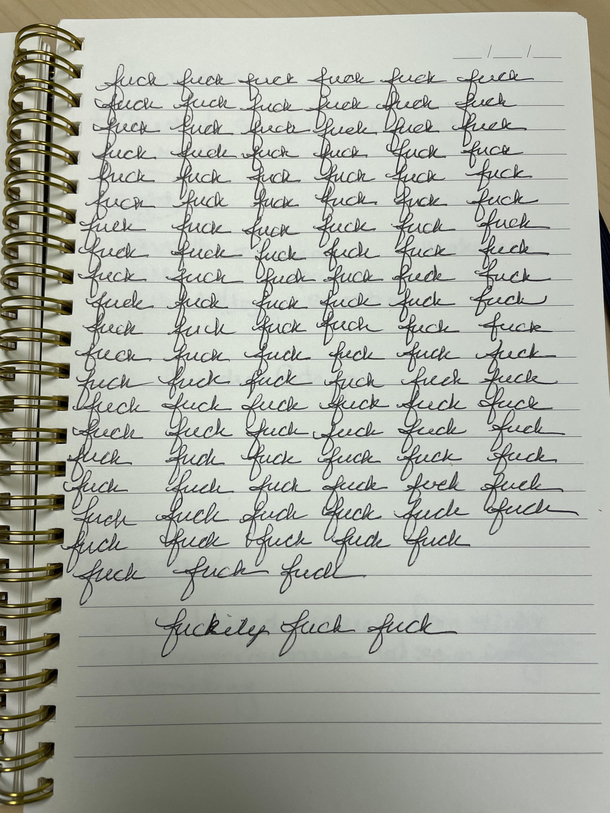 fuck fuck fuck fuck fuck fuck
fuck fuck fuck fuck fuck fuck
fuck fuck fuck fuck fuck fuck
fuck fuck fuck fuck fuck fuck
fuck fuck fuck fuck fuck fuck
fuck fuck fuck fuck fuck fuck
fuck fuck fuck fuck fuck fuck
fuck fuck fuck fuck fuck fuck
fuck fuck fuck fuck fuck fuck
fuck fuck fuck fuck fuck fuck
fuck fuck fuck fuck fuck fuck
fuck fuck fuck fuck fuck fuck
fuck fuck fuck fuck fuck fuck
fuck fuck fuck fuck fuck fuck
fuck fuck fuck fuck fuck fuck
fuck fuck fuck fuck fuck fuck
fuck fuck fuck fuck fuck fuck
fuck fuck fuck fuck fuck fuck
fuck fuck fuck fuck fuck
fuck fuck fuck
fuckity fuck fuck